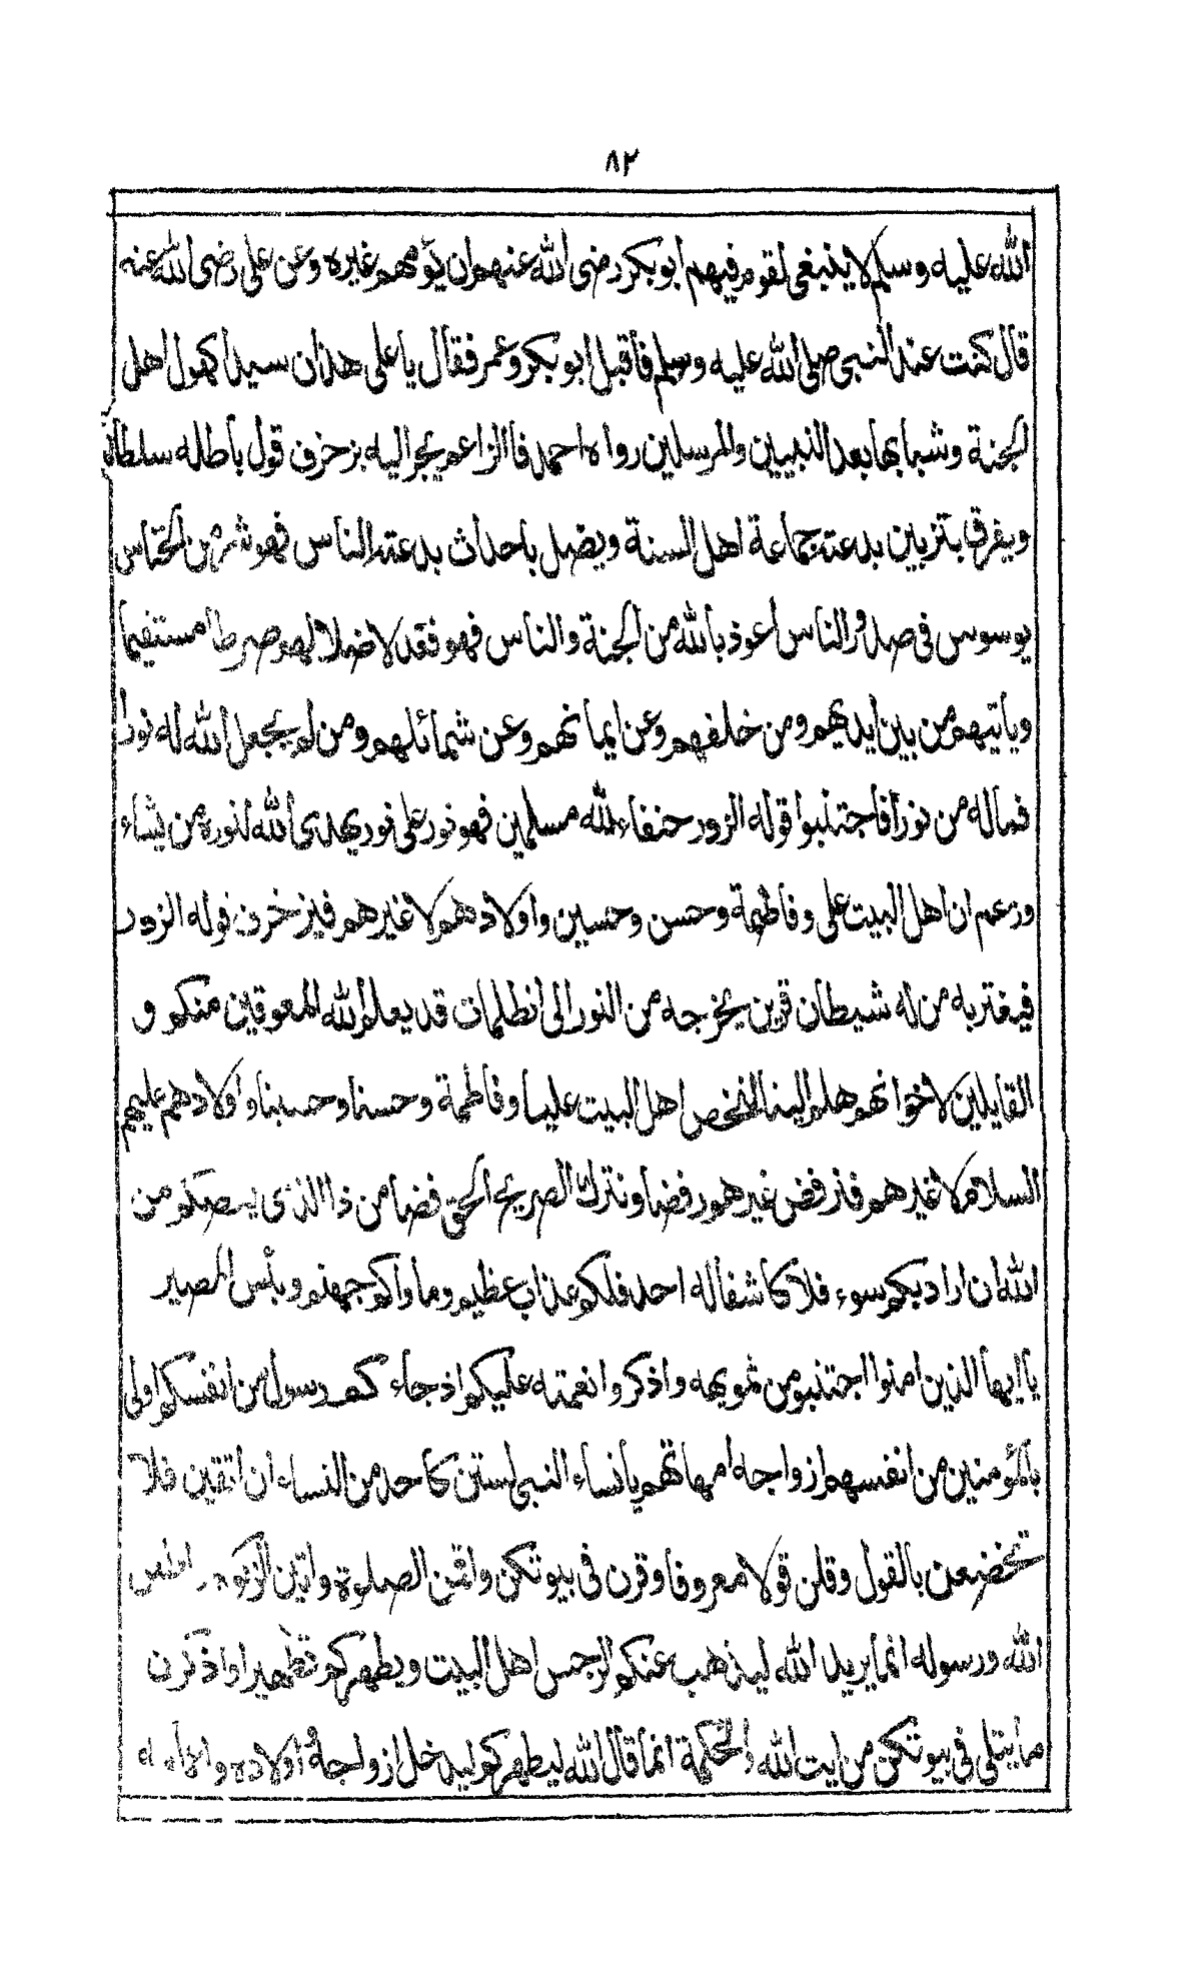 ٨٢
الله عليه وسلم لا ينبغى لقوم فيهم ابو بكر رضى الله عنهم ان يؤمهم غيره وعن على رضى الله عنه
قال كنت عند النبى صلى الله عليه وسلم فأقبل ابو بكر وعمر فقال يا على هذان سيدا كهول اهل
الجنة وشبابها بعد النبيين والمرسلين رواه احمد فالزاعم يجر اليه بزخرف قول باطله سلطان
ويفرق بتزيين بدعته جماعة اهل السنة ويضل باحداث بدعته الناس فهو شر من الخناس
يوسوس فى صدور الناس اعوذ بالله من الجنة والناس فهو فقد لاضلالهم صرطا مستقيما
وياتيهم من بين ايديهم ومن خلفهم وعن ايمانهم وعن شمائلهم ومن لم يجعل الله له نورا
فماله من نور فاجتنبوا قوله الزور حنفاء لله مسلمين فهو نور على نور يهدى الله لنوره من يشاء
وزعم ان اهل البيت على وفاطمة وحسن وحسين واولادهم لا غيرهم فيزخرف قوله الزور
فيغتر به من له شيطان قرين يخرجه من النور الى الظلمات قد يعلم الله المعوقين منكم و
القايلين لاخوانهم هلم الينا لنخص اهل البيت عليا وفاطمة وحسنا وحسينا واولادهم عليهم
السلام لا غيرهم فنرفض غيرهم رفضا ونترك الصريح الحق فضا من ذا الذى يعصمكم من
الله ان اراد بكم سوء فلا كاشفا له احد فلكم عذاب عظيم وماوأكم جهنم وبئس المصير
يا ايها الذين امنوا اجتنبوا من تمويهه واذكروا نعمته عليكم اذ جاءكم رسول من انفسكم اولى
بالمؤمنين من انفسهم ازواجه امهاتهم يا نساء النبى لستن كاحد من النساء ان اتقين فلا
تخضعن بالقول وقلن قولا معروفا وقرن فى بيوتكن واقمن الصلوة واتين الزكوة واطعن
الله ورسوله انما يريد الله ليذهب عنكم الرجس اهل البيت ويطهركم تطهيرا واذكرن
ما يتلى فى بيوتكن من ايت الله والحكمة انما قال الله ليطهركم ليدخل ازواجه واولاده